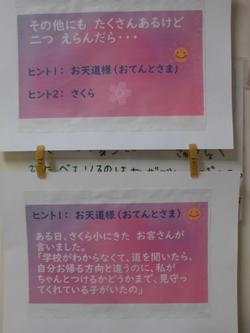 その他にも たくさんあるけど
二つ えらんだら・・・
ヒント1： お天道様（おてんとさま）
ヒント2： さくら
ヒント1： お天道様（おてんとさま）
ある日、さくら小にきた お客さんが
言いました。
「学校がわからなくて、道を聞いたら、
自分お帰る方向と違うのに、私が
ちゃんとつけるかどうかまで、見守っ
てくれている子がいたの」